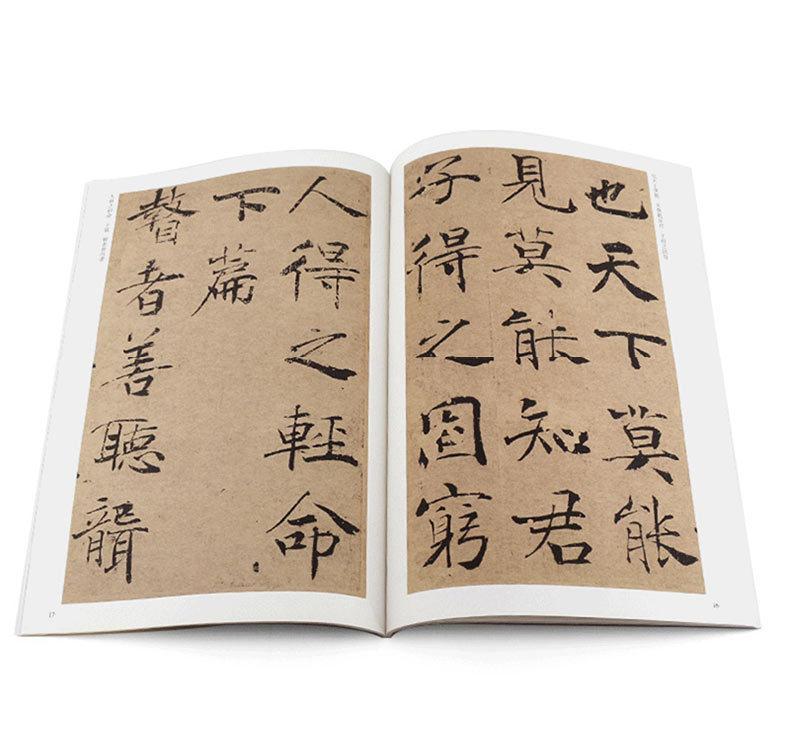 也天下莫能
見莫能知君
子得之固窮
16
人得之輕命
下篇
瞽者善聽聾
17